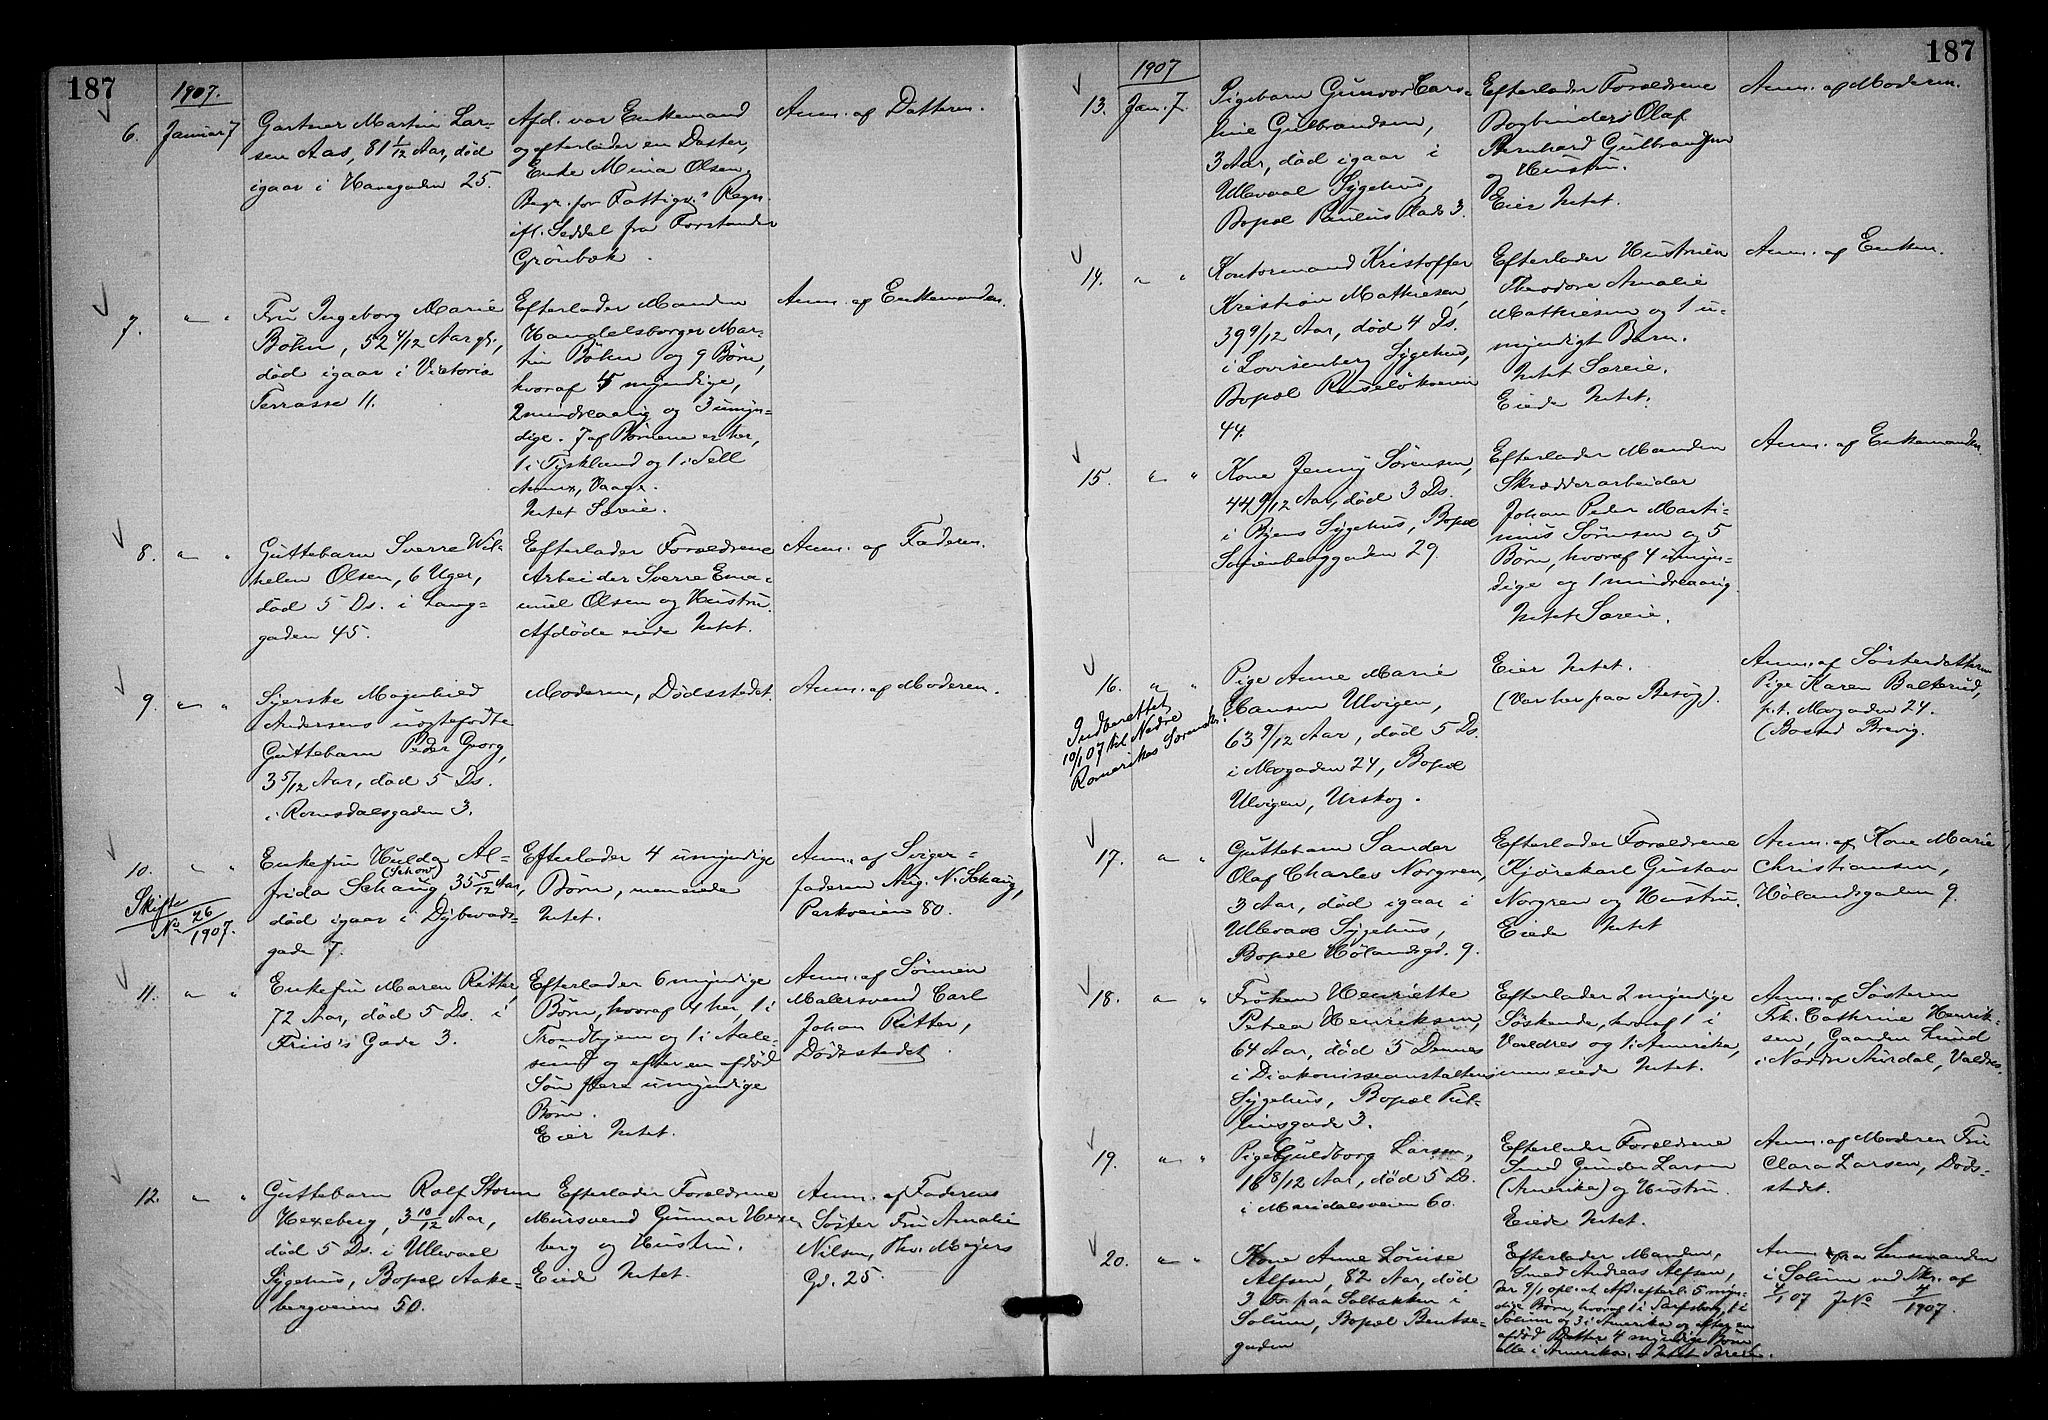 187
1907.
6. Januar 7
Gartner Martin Lar-
sen Aas, 81 1/12 Aar, død
igaar i Havegaden 25.
Afd. var Enkemand
og efterlader en Datter,
Enke Mina Olsen.
Begr. for Fattigv. Regn.
ifl. Seddel fra Forstander
Grönbæk.
Anm. af Datteren.
7. " "
Fru Ingeborg Marie
Böhn, 52 4/12 Aar gl.,
død igaar i Victoria
Terrasse 11.
Efterlader Manden
Handelsborger Mar-
tin Böhn og 9 Børn,
hvoraf 4 myndige,
2 mindreaarig og 3 umyn-
dige. 7 af Børnene er her,
1 i Tyskland og 1 i Sell
Annex, Vaage.
Intet Særeie.
Anm. af Enkemanden.
8. " "
Guttebarn Sverre Wil-
helm Olsen, 6 Uger,
død 5 Ds. i Lang-
gaden 45.
Efterlader Forældrene
Arbeider Sverre Ema-
nuel Olsen og Hustru.
Afdøde eiede Intet.
Anm. af Faderen.
9. " "
Syerske Magnhild
Andersens uægtefødte
Guttebarn Peder Georg,
3 5/12 Aar, død 5 Ds.
i Romsdalsgaden 3.
Moderen, Dødsstedet.
Anm. af Moderen.
10. " "
Skifte
No 26/1907.
Enkefru Hulda Al-
(Schow)
frida Schaug, 35 5/12 Aar,
død igaar i Dybwads-
gade 7.
Efterlader 4 umyndige
Børn, men eiede
Intet.
Anm. af Sviger-
faderen Aug. N. Schaug,
Parkveien 80.
11. " "
Enkefru Maren Ritter,
72 Aar, død 5 Ds. i
Friis's Gade 3.
Efterlader 6 myndige
Børn, hvoraf 4 her, 1 i
Trondhjem og 1 i Aale-
sund og efter en afdød
Søn flere umyndige
Børn.
Eier Intet.
Anm. af Sönnen
Malersvend Carl
Johan Ritter,
Dödsstedet.
12. " "
Guttebarn Rolf Storm
Hexeberg, 3 10/12 Aar,
død 5 Ds. i Ullevaal
Sygehus, Bopæl Aake-
bergveien 50.
Efterlader Forældrene
Mursvend Gunnar Hexe-
berg og Hustru.
Eiede Intet.
Anm. af Faderens
Søster Fru Amalie
Nilsen, Thv. Meyers
Gd. 25.
187
1907
13. Jan. 7.
Pigebarn Gunvor Caro-
line Gulbrandsen,
3 Aar, død igaar i
Ullevaal Sygehus,
Bopæl Paulus Plads 3.
Efterlader Forældrene
Bogbinder Olaf
Bernhard Gulbrandsen
og Hustru.
Eier Intet.
Anm. af Moderen.
14. " "
Kontormand Kristoffer
Kristian Mathiesen,
39 9/12 Aar, død 4 Ds.
i Lovisenberg Sygehus,
Bopæl Ruseløkveien
44.
Efterlader Hustruen
Theodore Amalie
Mathiesen og 1 u-
myndigt Barn.
Intet Særeie.
Eiede Intet.
Anm. af Enken.
15. " "
Kone Jenny Sørensen,
44 9/12 Aar, død 3 Ds.
i Byens Sygehus, Bopæl
Sofienberggaden 29.
Efterlader Manden
Skrædderarbeider
Johan Peder Marti-
nius Sörensen og 5
Børn, hvoraf 4 umyn-
dige og 1 mindreaarig.
Intet Særeie.
Anm. af Enkemanden.
16. " "
Indberettet
10/1 07 til Nedre
Romerikes Sorenskr.
Pige Anne Marie
Hansen Ulvigen,
63 9/12 Aar, død 5 Ds.
i Mogaden 24, Bopæl
Ulvigen, Urskog.
Eier Intet.
(Var her paa Besøg).
Anm. af Søsterdatteren
Pige Karen Balterud,
p.t. Mogaden 24.
(Bosted Brevig.
17. " "
Guttebarn Sander
Olaf Charles Norgren,
3 Aar, død igaar i
Ullevaal Sygehus,
Bopæl Hölandsgd. 9.
Efterlader Forældrene
Kjørekarl Gustav
Norgren og Hustru.
Eiede Intet
Anm. af Kone Marie
Christiansen,
Hölandsgaden 9.
18. " "
Fröken Henriette
Petrea Henriksen,
64 Aar, død 5 Dennes
i Diakonisseanstaltens
Sygehus, Bopæl Tul-
linsgade 3.
Efterlader 2 myndige
Søskende, hvoraf 1 i
Valdres og 1 i Amerika,
men eiede Intet.
Anm. af Søsteren
Frk. Cathrine Henrik-
sen, Gaarden Lund
i Nordre Aurdal, Valdres.
19. " "
Pige Guldborg Larsen,
16 8/12 Aar, død 5 Ds.
i Maridalsveien 60.
Efterlader Forældrene
Smed Gunder Larsen
(Amerika) og Hustru.
Eiede Intet.
Anm. af Moderen Fru
Clara Larsen, Døds-
stedet.
20. " "
Kone Anne Louise
Alfsen, 82 Aar, død
3 paa Solbakken i
Solum, Bopæl Bentse-
gaden
Efterlader Manden,
Smed Andreas Alfsen,
der 9/1 opl. at Afd. efterl. 5 myn-
dige Børn, hvoraf 1 i Sarpsborg, 1 i
Solum og 3 i Amerika og efter en
afdød Datter 4 myndige Børn,
alle i Amerika. Intet Særeie.
Anm. fra Lensmanden
i Solum ved Skr. af
4/1 07 J No 4/1907.